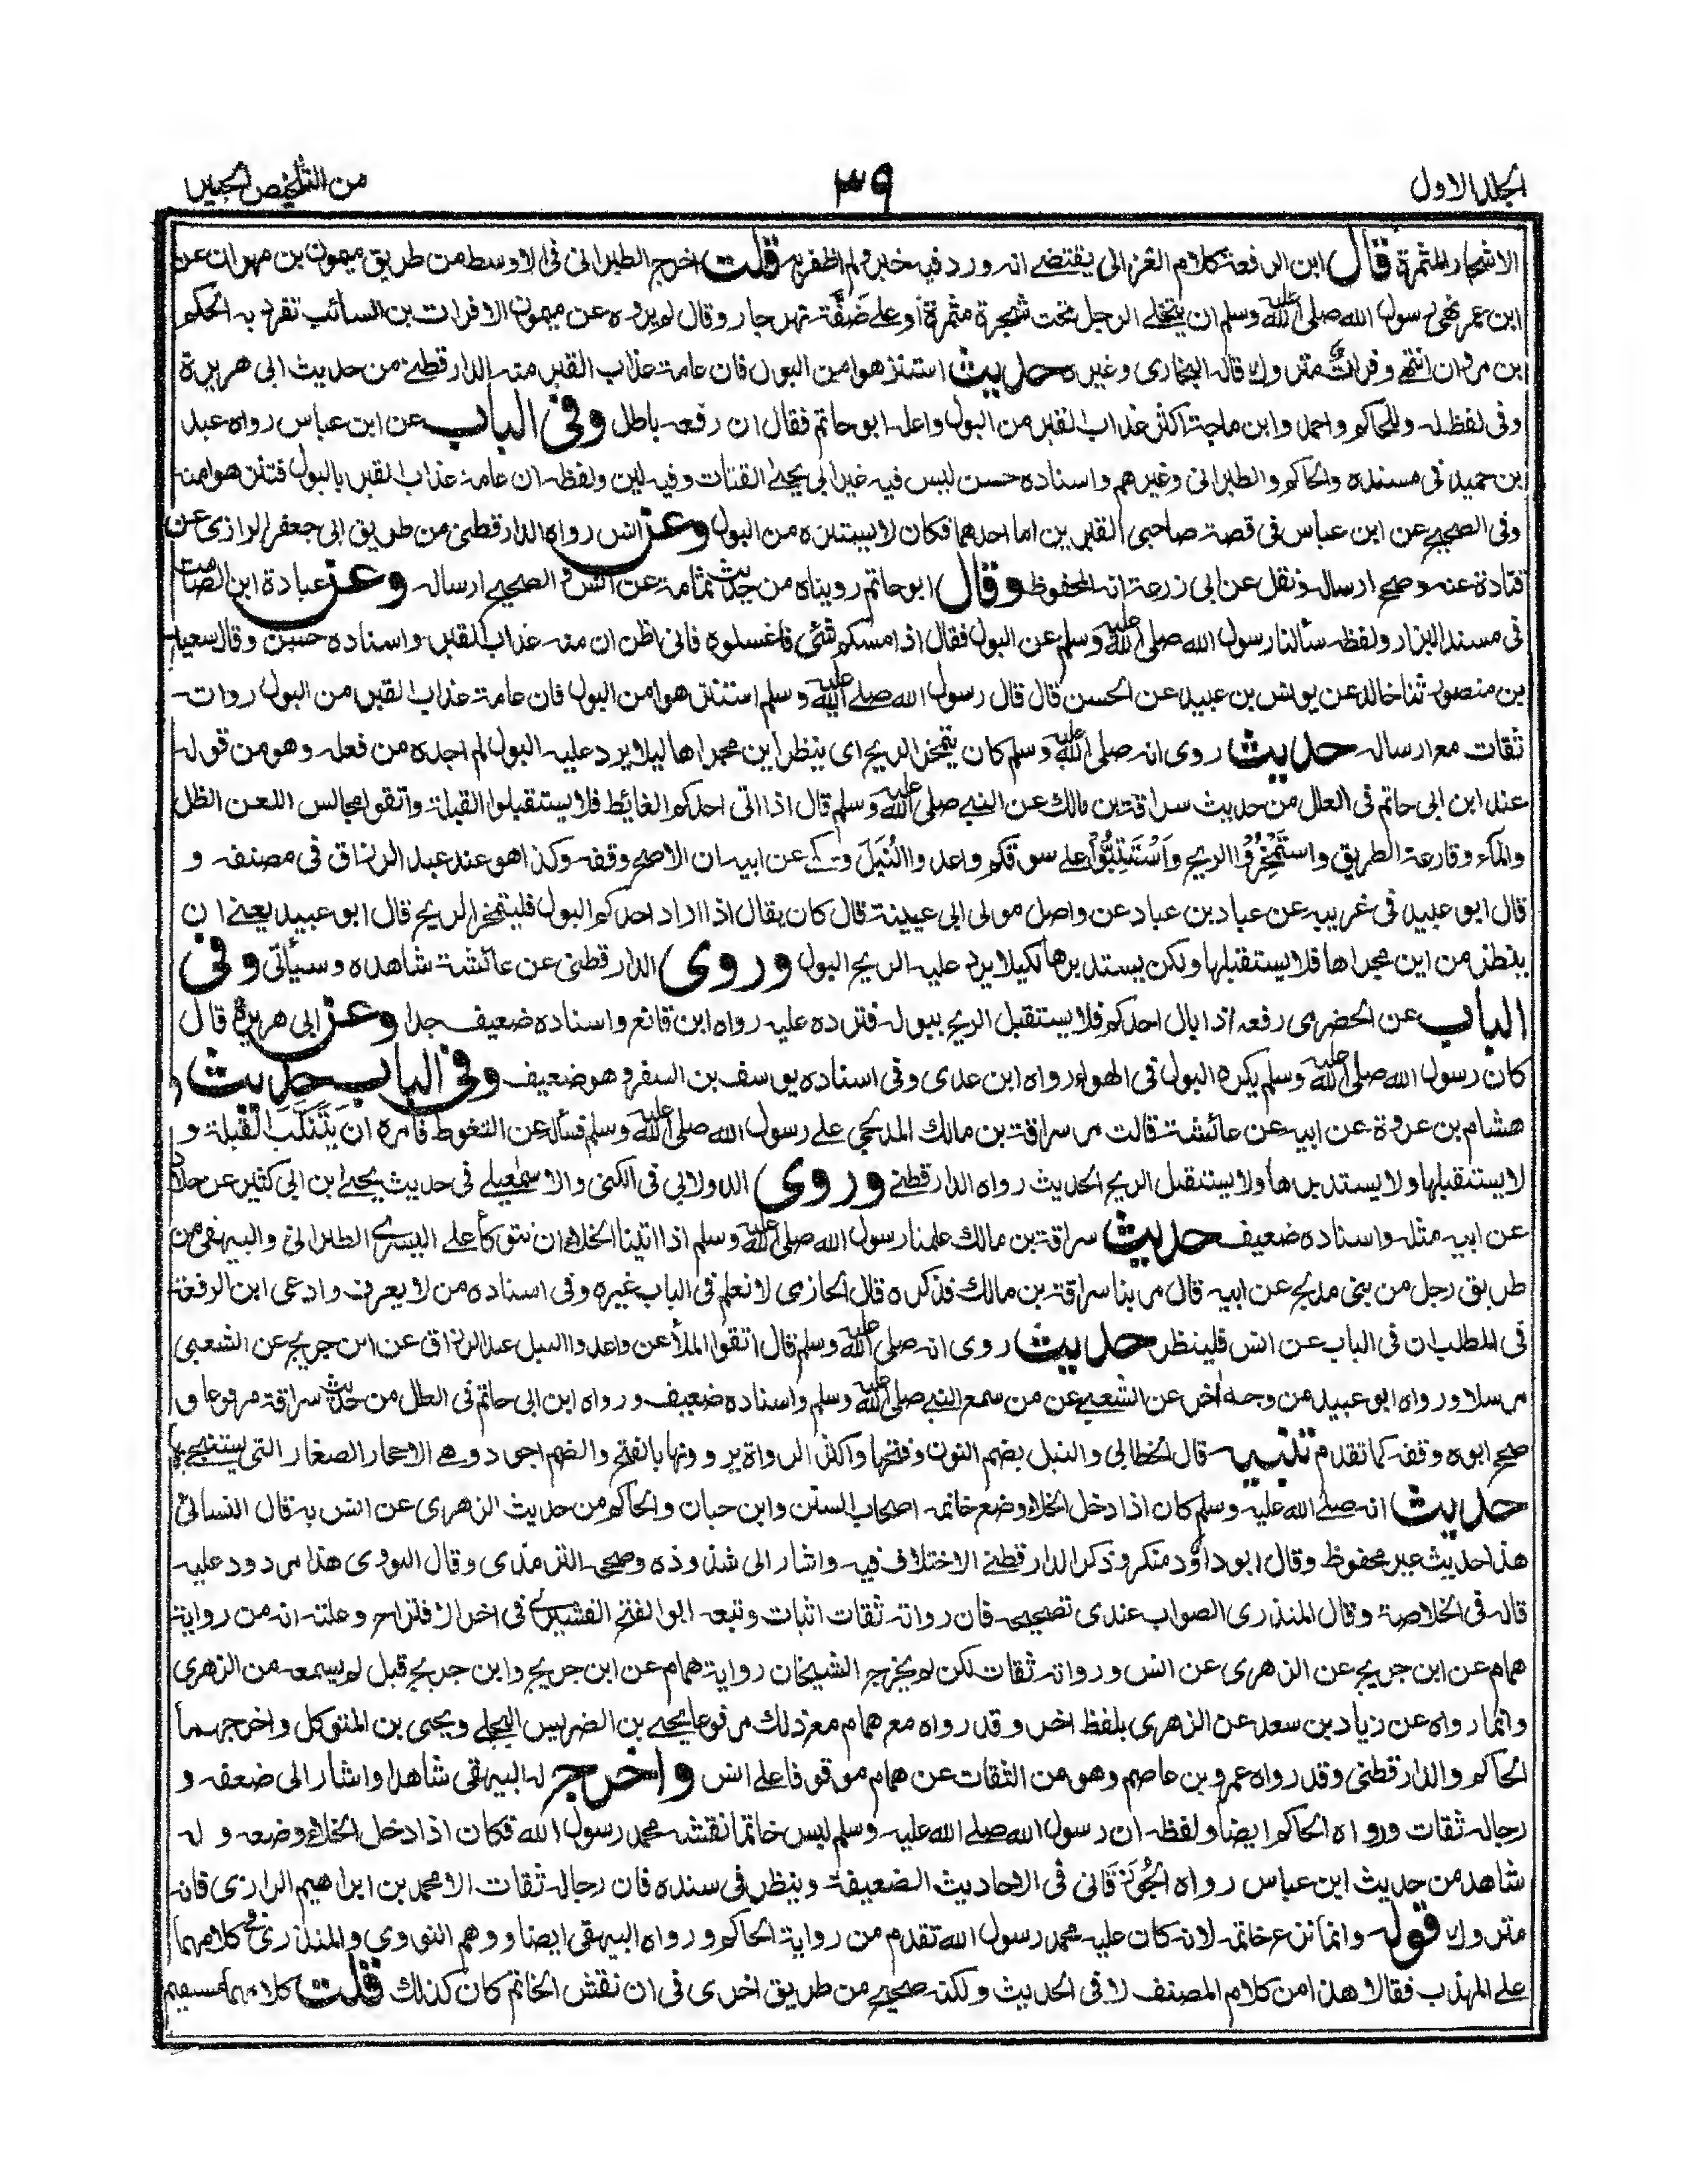 الجلد الاول
٣٩
من التلخيص الحبير
الاشجار المثمرة قال ابن الرفعة كلام الغزالى يقتضے انه ورد فيه خبر ولم اظفر به قلت اخرجه الطبرانى فى الاوسط من طريق ميمون بن مهران عن
ابن عمر نهى رسول الله صلى الله عليه وسلم ان يتخلے الرجل تحت شجرة مثمرة او علے ضَفَّة نهر جار وقال لم يروه عن ميمون الا فرات بن السائب تفرد به الحكم
ابن مروان انتهے وفرات متروك قاله البخارى وغيره حديث استنزهوا من البول فان عامة عذاب القبر منه الدارقطنے من حديث ابى هريرة
وفى لفظ له وللحاكم واحمد وابن ماجة اكثر عذاب القبر من البول واعله ابو حاتم فقال ان رفعه باطل وفى الباب عن ابن عباس رواه عبد
ابن حميد فى مسنده والحاكم والطبرانى وغيرهم واسناده حسن ليس فيه غير ابى يحيے القتات وفيه لين ولفظه ان عامة عذاب القبر بالبول فتنزهوا منه
وفى الصحيح عن ابن عباس فى قصة صاحبى القبرين اما احدهما فكان لا يستنزه من البول وعن انس رواه الدارقطنى من طريق ابى جعفر الرازى عن
قتادة عنه وصحح ارساله ونقل عن ابى زرعة انه المحفوظ وقال ابو حاتم رويناه من حديث ثمامة عن انس و الصحيح ارساله وعن عبادة ابن الصامت
فى مسند البزار ولفظه سألنا رسول الله صلى الله عليه وسلم عن البول فقال اذا مسكم شئ فاغسلوه فانى اظن ان منه عذاب القبر واسناده حسن وقال سعيد
بن منصور ثنا خالد عن يونس بن عبيد عن الحسن قال قال رسول الله صلے الله عليه وسلم استنزهوا من البول فان عامة عذاب القبر من البول رواته
ثقات مع ارساله حديث روى انه صلى الله عليه وسلم كان يتمخر الريح اى ينظر اين مجراها ليلا يرد عليه البول لم اجده من فعله وهو من قوله
عند ابن ابى حاتم فى العلل من حديث سراقة بن مالك عن النبے صلى الله عليه وسلم قال اذا اتى احدكم الغايط فلا يستقبلوا القبلة واتقوا مجالس اللعن الظل
والماء وقارعة الطريق واستَمْخِرُوا الريح وَاسْتَتِبُّوْا علے سوقكم واعدوا النُبَلَ وحكے عن ابيه ان الاصح وقفه وكذا هو عند عبد الرزاق فى مصنفه و
قال ابو عبيد فى غريبه عن عباد بن عباد عن واصل مولى ابى عيينة قال كان يقال اذا اراد احدكم البول فليتمخر الريح قال ابو عبيد يعنے ان
ينظر من اين مجراها فلا يستقبلها ولكن يستدبرها لكيلا يرد عليه الريح البول وروى الدارقطنى عن عائشة شاهده وسيأتى وفى
الباب عن الحضرمى رفعه اذا بال احدكم فلا يستقبل الريح ببوله فترده عليه رواه ابن قانع واسناده ضعيف جدا وعن ابى هريرة قال
كان رسول الله صلى الله عليه وسلم يكره البول فى الهواء رواه ابن عدى وفى اسناده يوسف بن السفر وهو ضعيف وفى الباب حديث
هشام بن عروة عن ابيه عن عائشة قالت مر سراقة بن مالك المدلجى على رسول الله صلى الله عليه وسلم فسأله عن التغوط فامره ان يَتَنَكَّبَ القبلة و
لا يستقبلها ولا يستدبرها ولا يستقبل الريح الحديث رواه الدارقطنے وروى الدولابى فى الكنى والاسمٰعيلے فى حديث يحيے ابن ابى كثير عن خلاد
عن ابيه مثله واسناده ضعيف حديث سراقة بن مالك علمنا رسول الله صلى الله عليه وسلم اذا اتينا الخلاء ان نتوكأ علے اليسرے الطبرانى والبيهقى من
طريق رجل من بنى مدلج عن ابيه قال مر بنا سراقة بن مالك فذكره قال الحازمى لا نعلم فى الباب غيره وفى اسناده من لا يعرف وادعى ابن الرفعة
فى المطلب ان فى الباب عن انس فلينظر حديث روى انه صلى الله عليه وسلم قال اتقوا الملاعن واعدوا النبل عبد الرزاق عن ابن جريج عن الشعبى
مرسلا ورواه ابو عبيد من وجه اٰخر عن الشعبے عن من سمع النبے صلى الله عليه وسلم واسناده ضعيف ورواه ابن ابى حاتم فى العلل من حديث سراقة مرفوعا و
صحح ابوه وقفه كما تقدم تنبيه قال الخطابى والنبل بضم النون وفتحها واكثر الرواة يروونها بالفتح والضم اجود وهے الاحجار الصغار التى يستنجے بها
حديث انه صلے الله عليه وسلم كان اذا دخل الخلاء وضع خاتمه اصحاب السنن وابن حبان والحاكم من حديث الزهرى عن انس به قال النسائى
هذا حديث غير محفوظ وقال ابو داؤد منكر وذكر الدارقطنے الاختلاف فيه واشار الى شذوذه وصححه الترمذى وقال النووى هذا مردود عليه
قاله فى الخلاصة وقال المنذرى الصواب عندى تصحيحه فان رواته ثقات اثبات وتبعه ابو الفتح القشيرے فى اخر الاقتراح وعلته انه من رواية
همام عن ابن جريج عن الزهرى عن انس ورواته ثقات لكن لم يخرج الشيخان رواية همام عن ابن جريج وابن جريج قيل لم يسمعه من الزهرى
وانما رواه عن زياد بن سعد عن الزهرى بلفظ اخر وقد رواه مع همام مع ذلك مرفوعا يحيے بن الضريس البجلے ويحيى بن المتوكل واخرجهما
الحاكم والدارقطنى وقد رواه عمرو بن عاصم وهو من الثقات عن همام موقوفا على انس واخرج له البيهقى شاهدا واشار الى ضعفه و
رجاله ثقات ورواه الحاكم ايضا ولفظه ان رسول الله صلے الله عليه وسلم لبس خاتما نقشه محمد رسول الله فكان اذا دخل الخلاء وضعه و له
شاهد من حديث ابن عباس رواه الجُوزَقَانى فى الاحاديث الضعيفة وينظر فى سنده فان رجاله ثقات الا محمد بن ابراهيم الرازى فانه
متروك قوله وانما نزع خاتمه لانه كان عليه محمد رسول الله تقدم من رواية الحاكم ورواه البيهقى ايضا ووهم النووى والمنذرى فى كلامهما
علے المهذب فقالا هذا من كلام المصنف لا فى الحديث ولكنه صحيح من طريق اخرى فى ان نقش الخاتم كان كذلك قلت كلامهما مستقيم